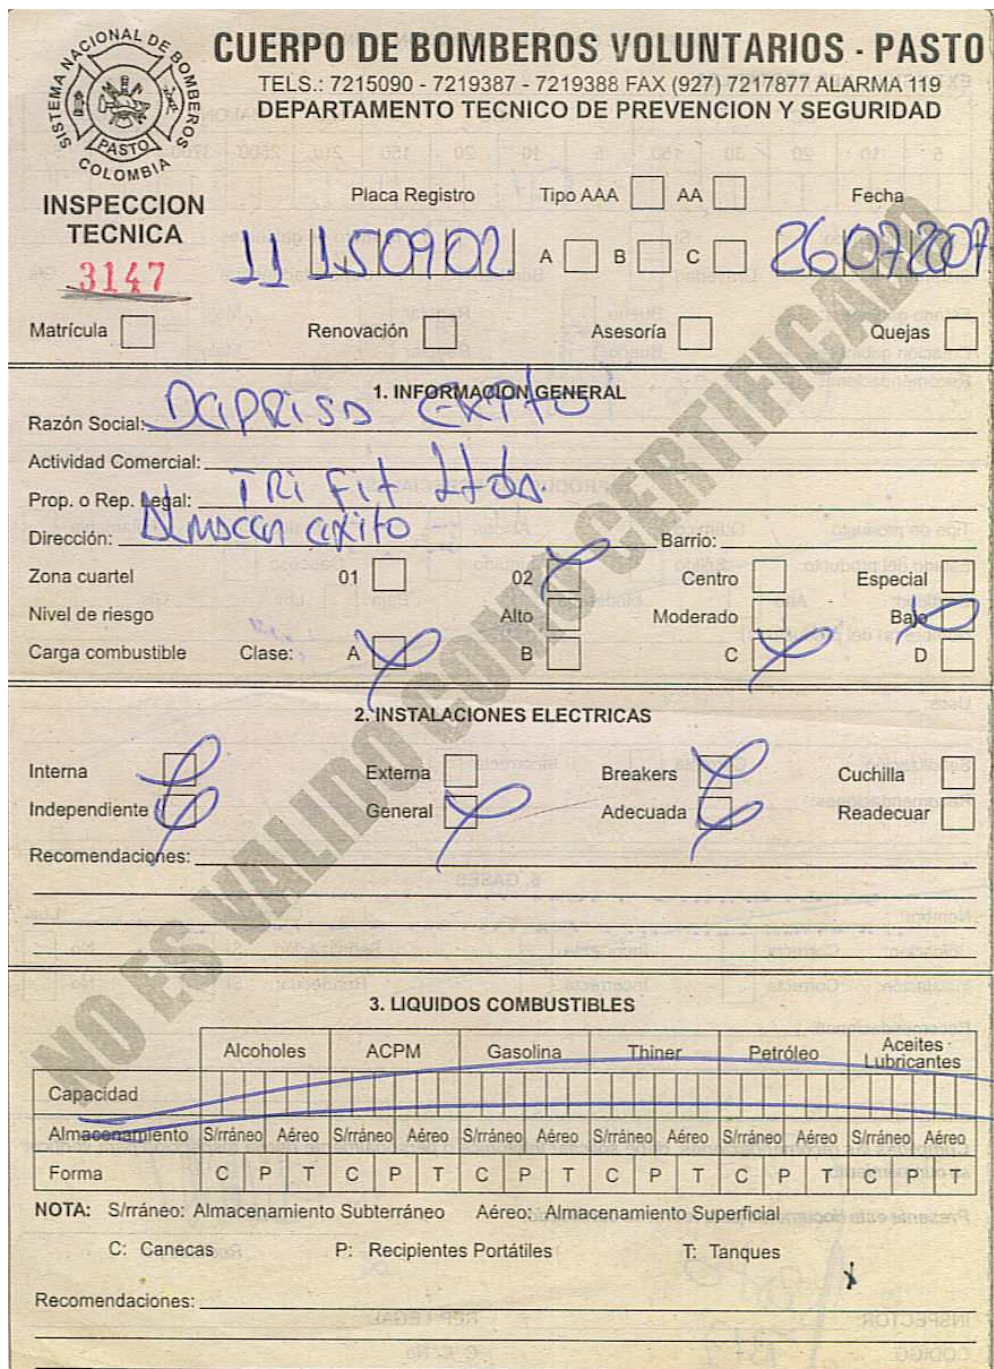 SISTEMA NACIONAL DE BOMBEROS
PASTO
COLOMBIA
CUERPO DE BOMBEROS VOLUNTARIOS - PASTO
TELS.: 7215090 - 7219387 - 7219388 FAX (927) 7217877 ALARMA 119
DEPARTAMENTO TECNICO DE PREVENCION Y SEGURIDAD
INSPECCION
TECNICA
3147
Placa Registro Tipo AAA AA Fecha
11150902 A B C 26072007
Matrícula Renovación Asesoría Quejas
NO ES VALIDO COMO CERTIFICADO
1. INFORMACION GENERAL
Razón Social: Daprisa exito
Actividad Comercial:
Prop. o Rep. Legal: TRi Fit Ltda.
Dirección: Almacen exito Barrio:
Zona cuartel 01 02 Centro Especial
Nivel de riesgo Alto Moderado Bajo
Carga combustible Clase: A B C D
2. INSTALACIONES ELECTRICAS
Interna Externa Breakers Cuchilla
Independiente General Adecuada Readecuar
Recomendaciones:
3. LIQUIDOS COMBUSTIBLES
Alcoholes ACPM Gasolina Thiner Petróleo Aceites Lubricantes
Capacidad
Almacenamiento S/rráneo Aéreo S/rráneo Aéreo S/rráneo Aéreo S/rráneo Aéreo S/rráneo Aéreo S/rráneo Aéreo
Forma C P T C P T C P T C P T C P T C P T
NOTA: S/rráneo: Almacenamiento Subterráneo Aéreo: Almacenamiento Superficial
C: Canecas P: Recipientes Portátiles T: Tanques
Recomendaciones: